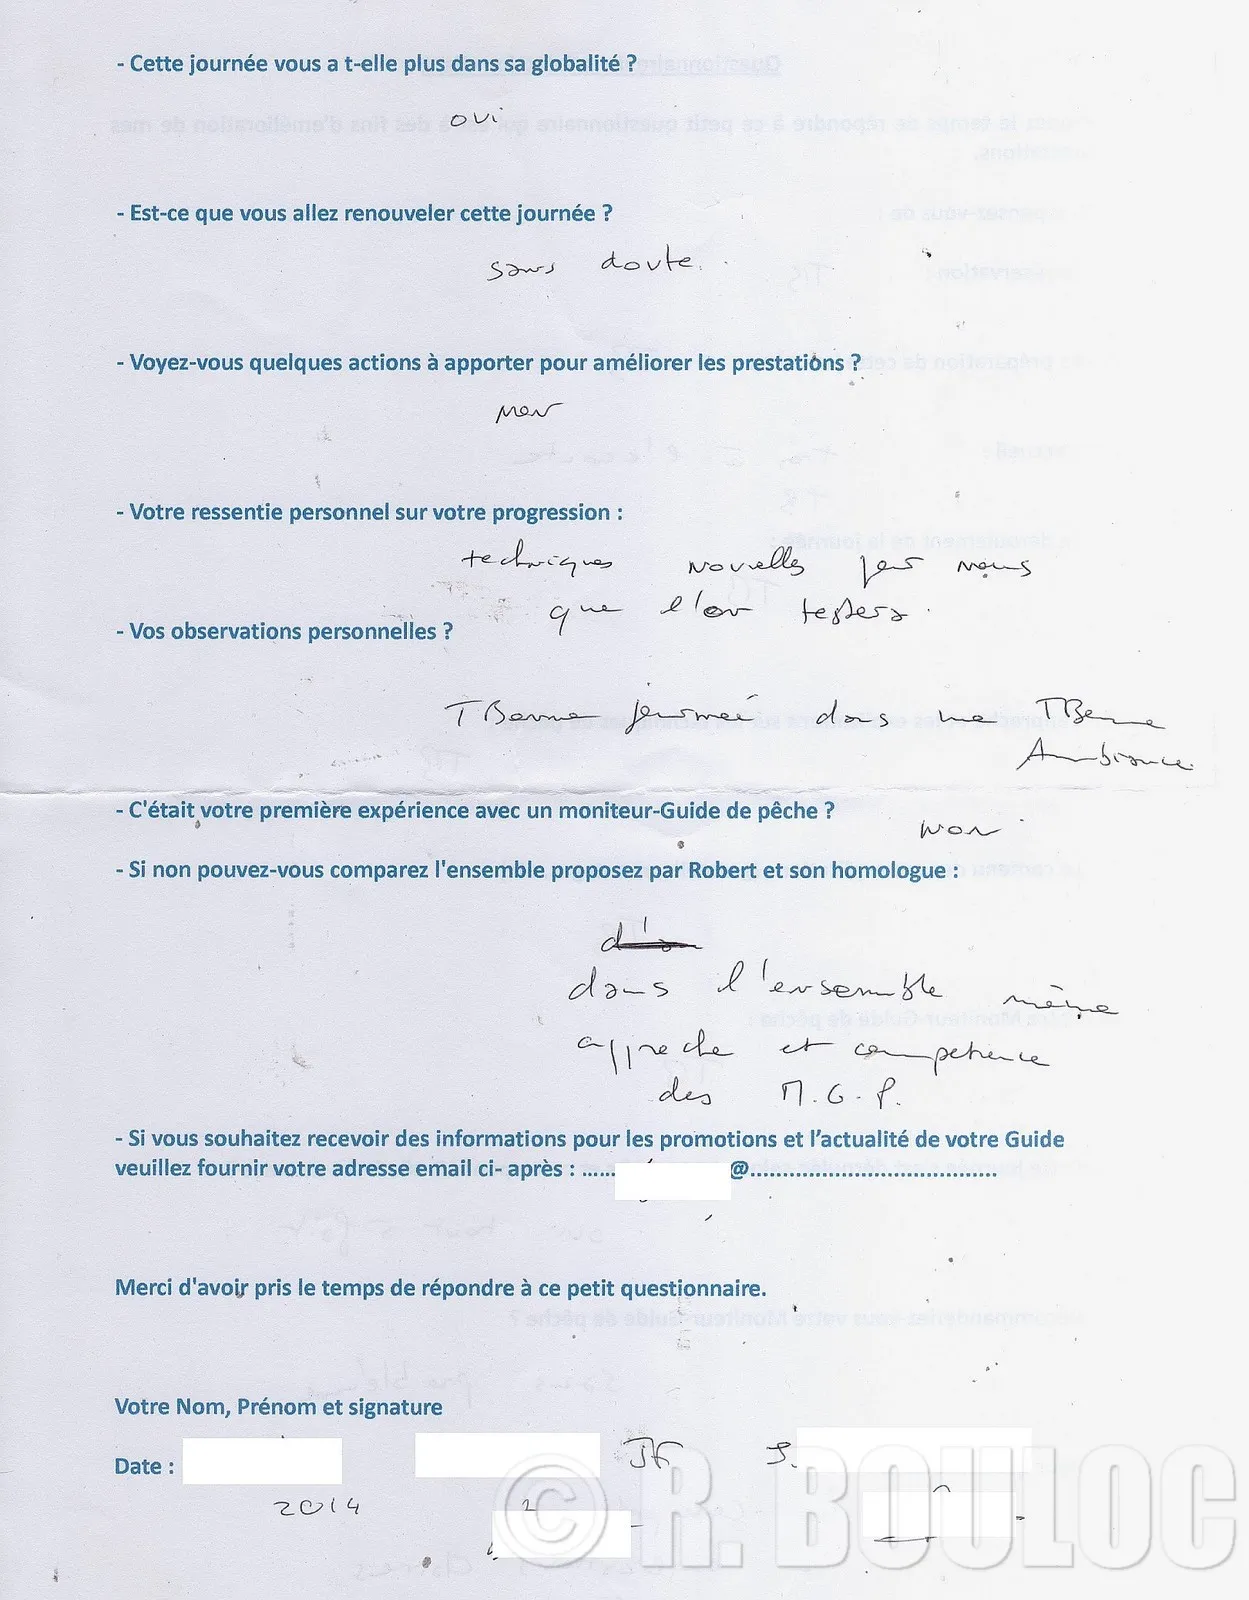 - Cette journée vous a t-elle plus dans sa globalité ?
oui
- Est-ce que vous allez renouveler cette journée ?
sans doute.
- Voyez-vous quelques actions à apporter pour améliorer les prestations ?
non
- Votre ressentie personnel sur votre progression :
techniques nouvelles pour nous
que l'on testera.
- Vos observations personnelles ?
TBonne journée dans une TBonne
Ambiance.
- C'était votre première expérience avec un moniteur-Guide de pêche ?
non.
- Si non pouvez-vous comparez l'ensemble proposez par Robert et son homologue :
dans l'ensemble même
approche et compétence
des M.G.P.
- Si vous souhaitez recevoir des informations pour les promotions et l'actualité de votre Guide
veuillez fournir votre adresse email ci- après : ...... @.....................................
Merci d'avoir pris le temps de répondre à ce petit questionnaire.
Votre Nom, Prénom et signature
Date : JF S.
2014
© R. BOULOC